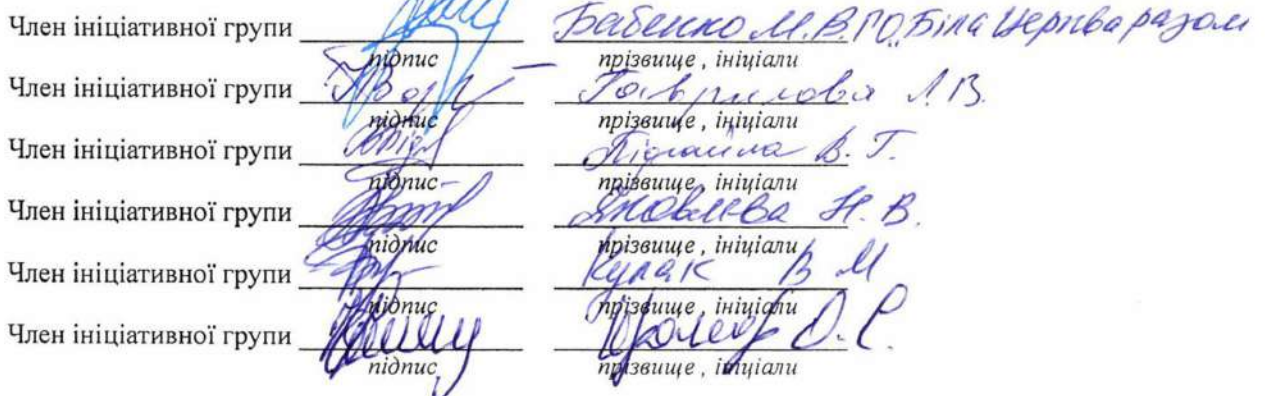 Член ініціативної групи Бабенко М.В. ГО „Біла Церква разом
підпис прізвище, ініціали
Член ініціативної групи Гаврилова Л.В.
підпис прізвище, ініціали
Член ініціативної групи В. Г.
підпис прізвище, ініціали
Член ініціативної групи Яковлєва Н. В.
підпис прізвище, ініціали
Член ініціативної групи Кулак В М
підпис прізвище, ініціали
Член ініціативної групи О.С.
підпис прізвище, ініціали